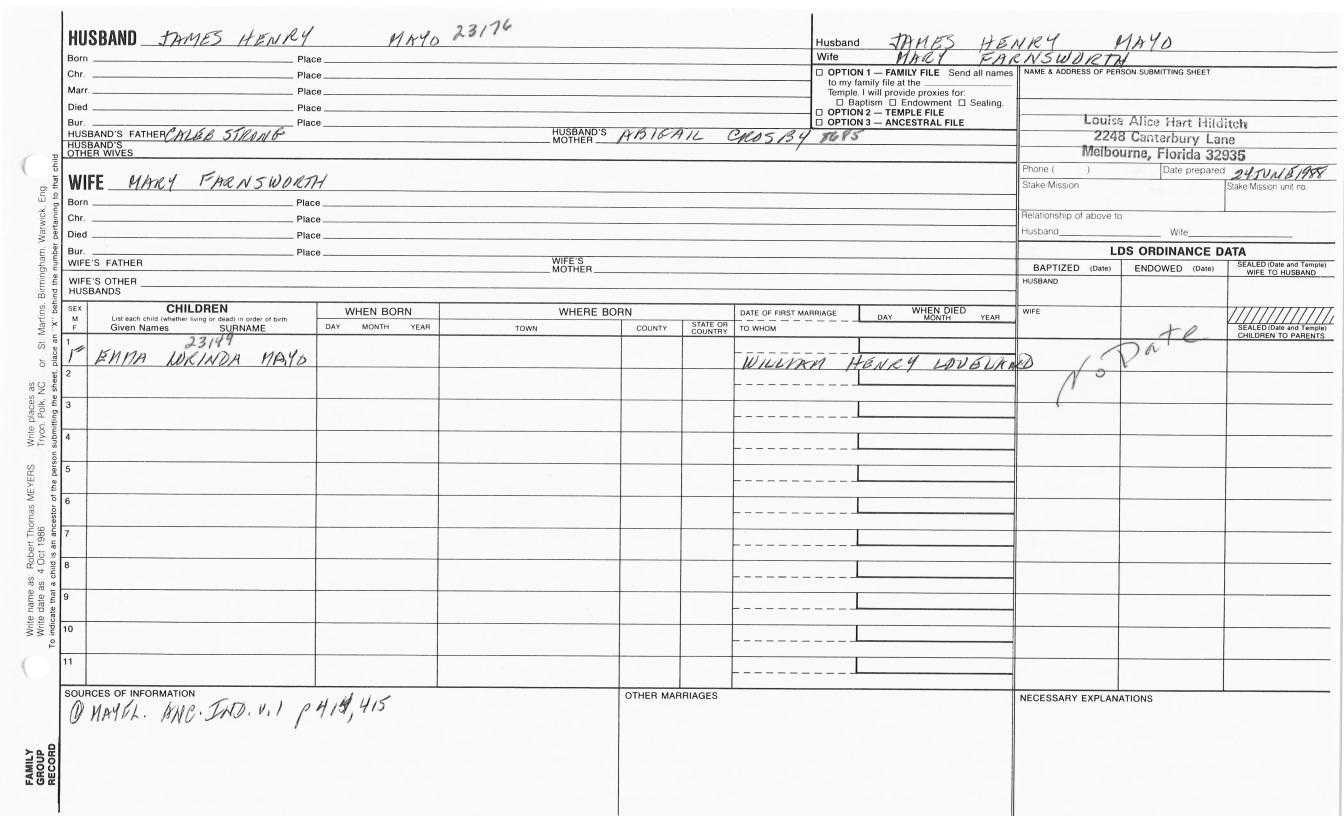 HUSBAND JAMES HENRY MAYO 23176
Born Place
Chr. Place
Marr. Place
Died Place
Bur. Place
HUSBAND'S FATHER CALEB STRONG HUSBAND'S MOTHER ABIGAIL CROSBY 8685
HUSBAND'S OTHER WIVES
WIFE MARY FARNSWORTH
Born Place
Chr. Place
Died Place
Bur. Place
WIFE'S FATHER WIFE'S MOTHER
WIFE'S OTHER HUSBANDS
Husband JAMES HENRY MAYO
Wife MARY FARNSWORTH
☐ OPTION 1 — FAMILY FILE Send all names
to my family file at the
Temple. I will provide proxies for:
☐ Baptism ☐ Endowment ☐ Sealing.
☐ OPTION 2 — TEMPLE FILE
☐ OPTION 3 — ANCESTRAL FILE
NAME & ADDRESS OF PERSON SUBMITTING SHEET
Louise Alice Hart Hilditch
2248 Canterbury Lane
Melbourne, Florida 32935
Phone ( ) Date prepared 24 JUNE 1988
Stake/Mission Stake/Mission unit no.
Relationship of above to
Husband Wife
LDS ORDINANCE DATA
BAPTIZED (Date) ENDOWED (Date) SEALED (Date and Temple) WIFE TO HUSBAND
HUSBAND
WIFE
SEALED (Date and Temple) CHILDREN TO PARENTS
No Date
SEX M F
CHILDREN
List each child (whether living or dead) in order of birth
Given Names SURNAME
WHEN BORN
DAY MONTH YEAR
WHERE BORN
TOWN COUNTY STATE OR COUNTRY
DATE OF FIRST MARRIAGE
TO WHOM
WHEN DIED
DAY MONTH YEAR
23149
1 F EMMA LORINDA MAYO WILLIAM HENRY LOVELAND
2
3
4
5
6
7
8
9
10
11
SOURCES OF INFORMATION
① MAYFL. ANC. IND. v.1 p 414, 415
OTHER MARRIAGES
NECESSARY EXPLANATIONS
Write name as Robert Thomas MEYERS Write places as Tryon, Polk, NC or St Martins, Birmingham, Warwick, Eng
Write date as 4 Oct 1986
To indicate that a child is an ancestor of the person submitting the sheet, place an "X" behind the number pertaining to that child
FAMILY
GROUP
RECORD